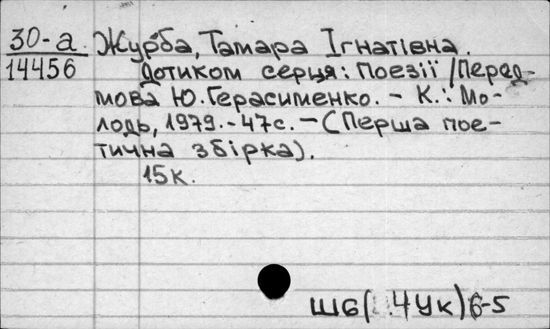 30-а Журба, Тамара Ігнатівна.
14456 Дотиком серця: Поезії /Перед-
мова Ю. Герасименко. - К.: Мо-
лодь, 1979. - 47с. - (Перша пое-
тична збірка).
15к.
Ш6( 4Ук)6-5